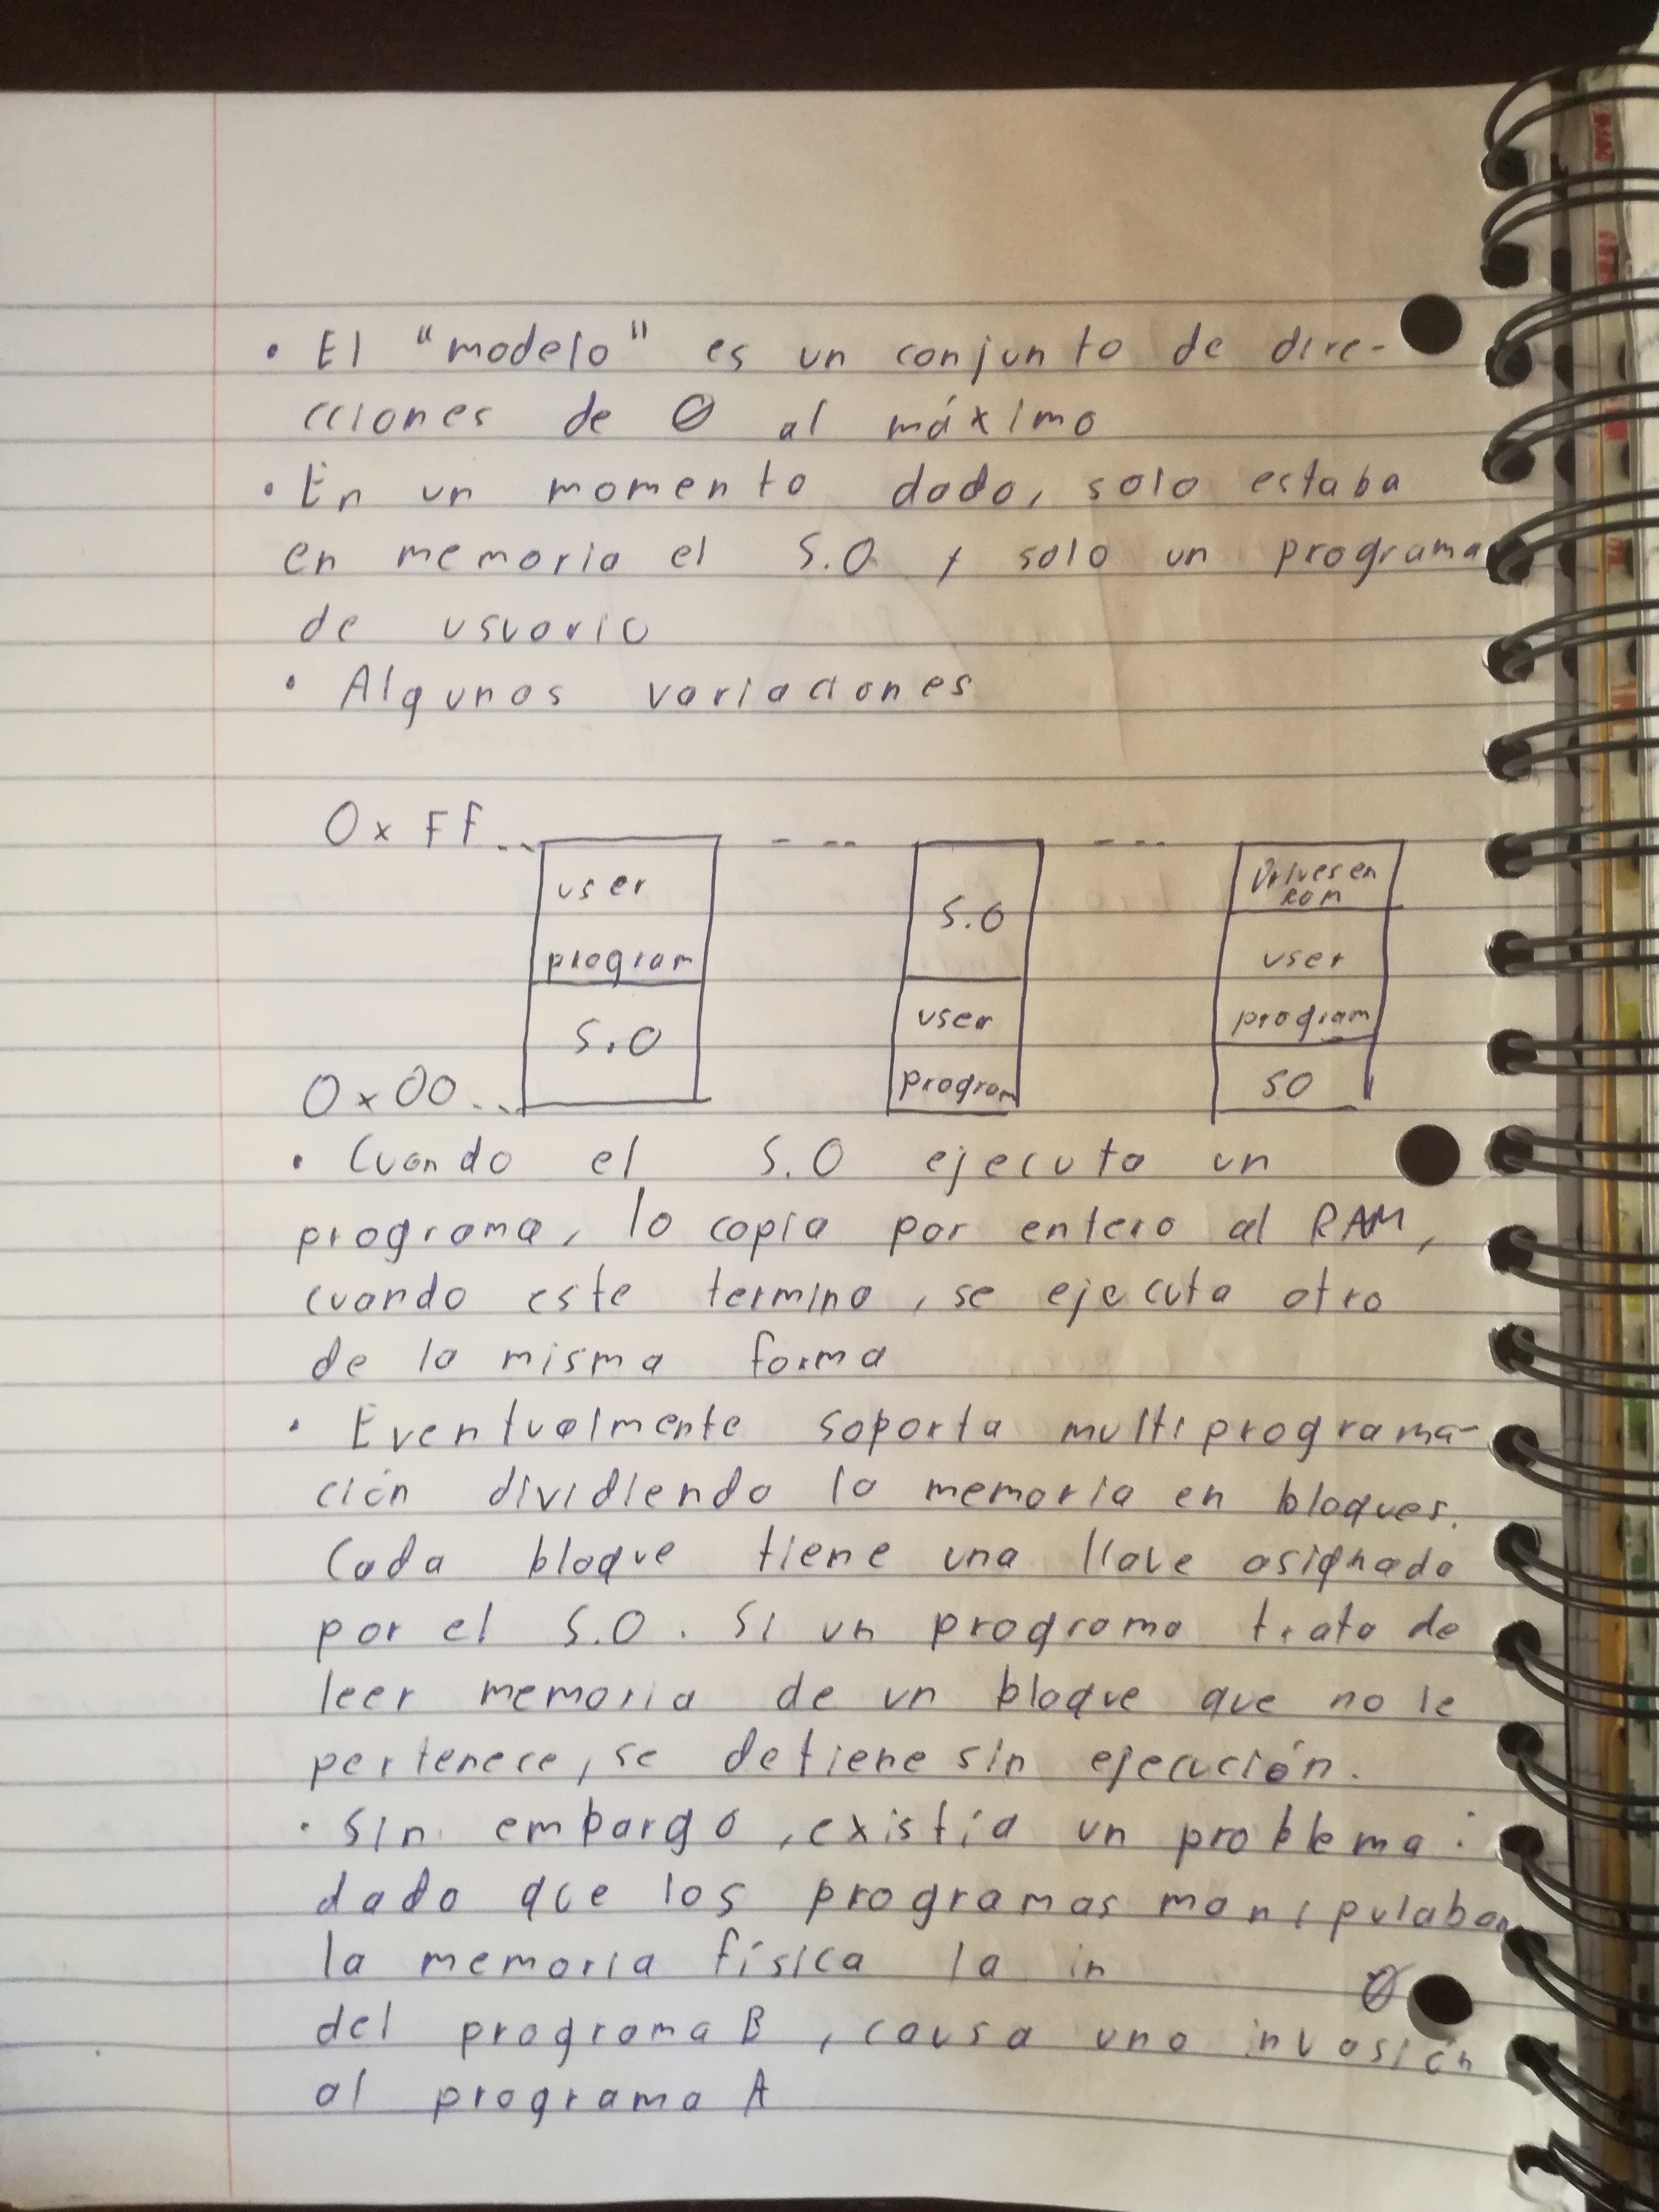 • El "modelo" es un conjunto de dire-
cciones de 0 al máximo
• En un momento dado, solo estaba
en memoria el S.O y solo un programa
de usuario
• Algunas variaciones
0x FF... --- ---
user
program
S.O
S.O
user
program
Drives en
ROM
user
program
SO
0x00...
• Cuando el S.O ejecuta un
programa, lo copia por entero al RAM,
cuando este termina, se ejecuta otro
de la misma forma
• Eventualmente soporta multiprograma-
ción dividiendo la memoria en bloques.
Cada bloque tiene una llave asignada
por el S.O. Si un programa trata de
leer memoria de un bloque que no le
pertenece, se detiene sin ejecución.
• Sin embargo, existía un problema:
dado que los programas manipulaban
la memoria física la in
0
del programa B, causa una invasión
al programa A